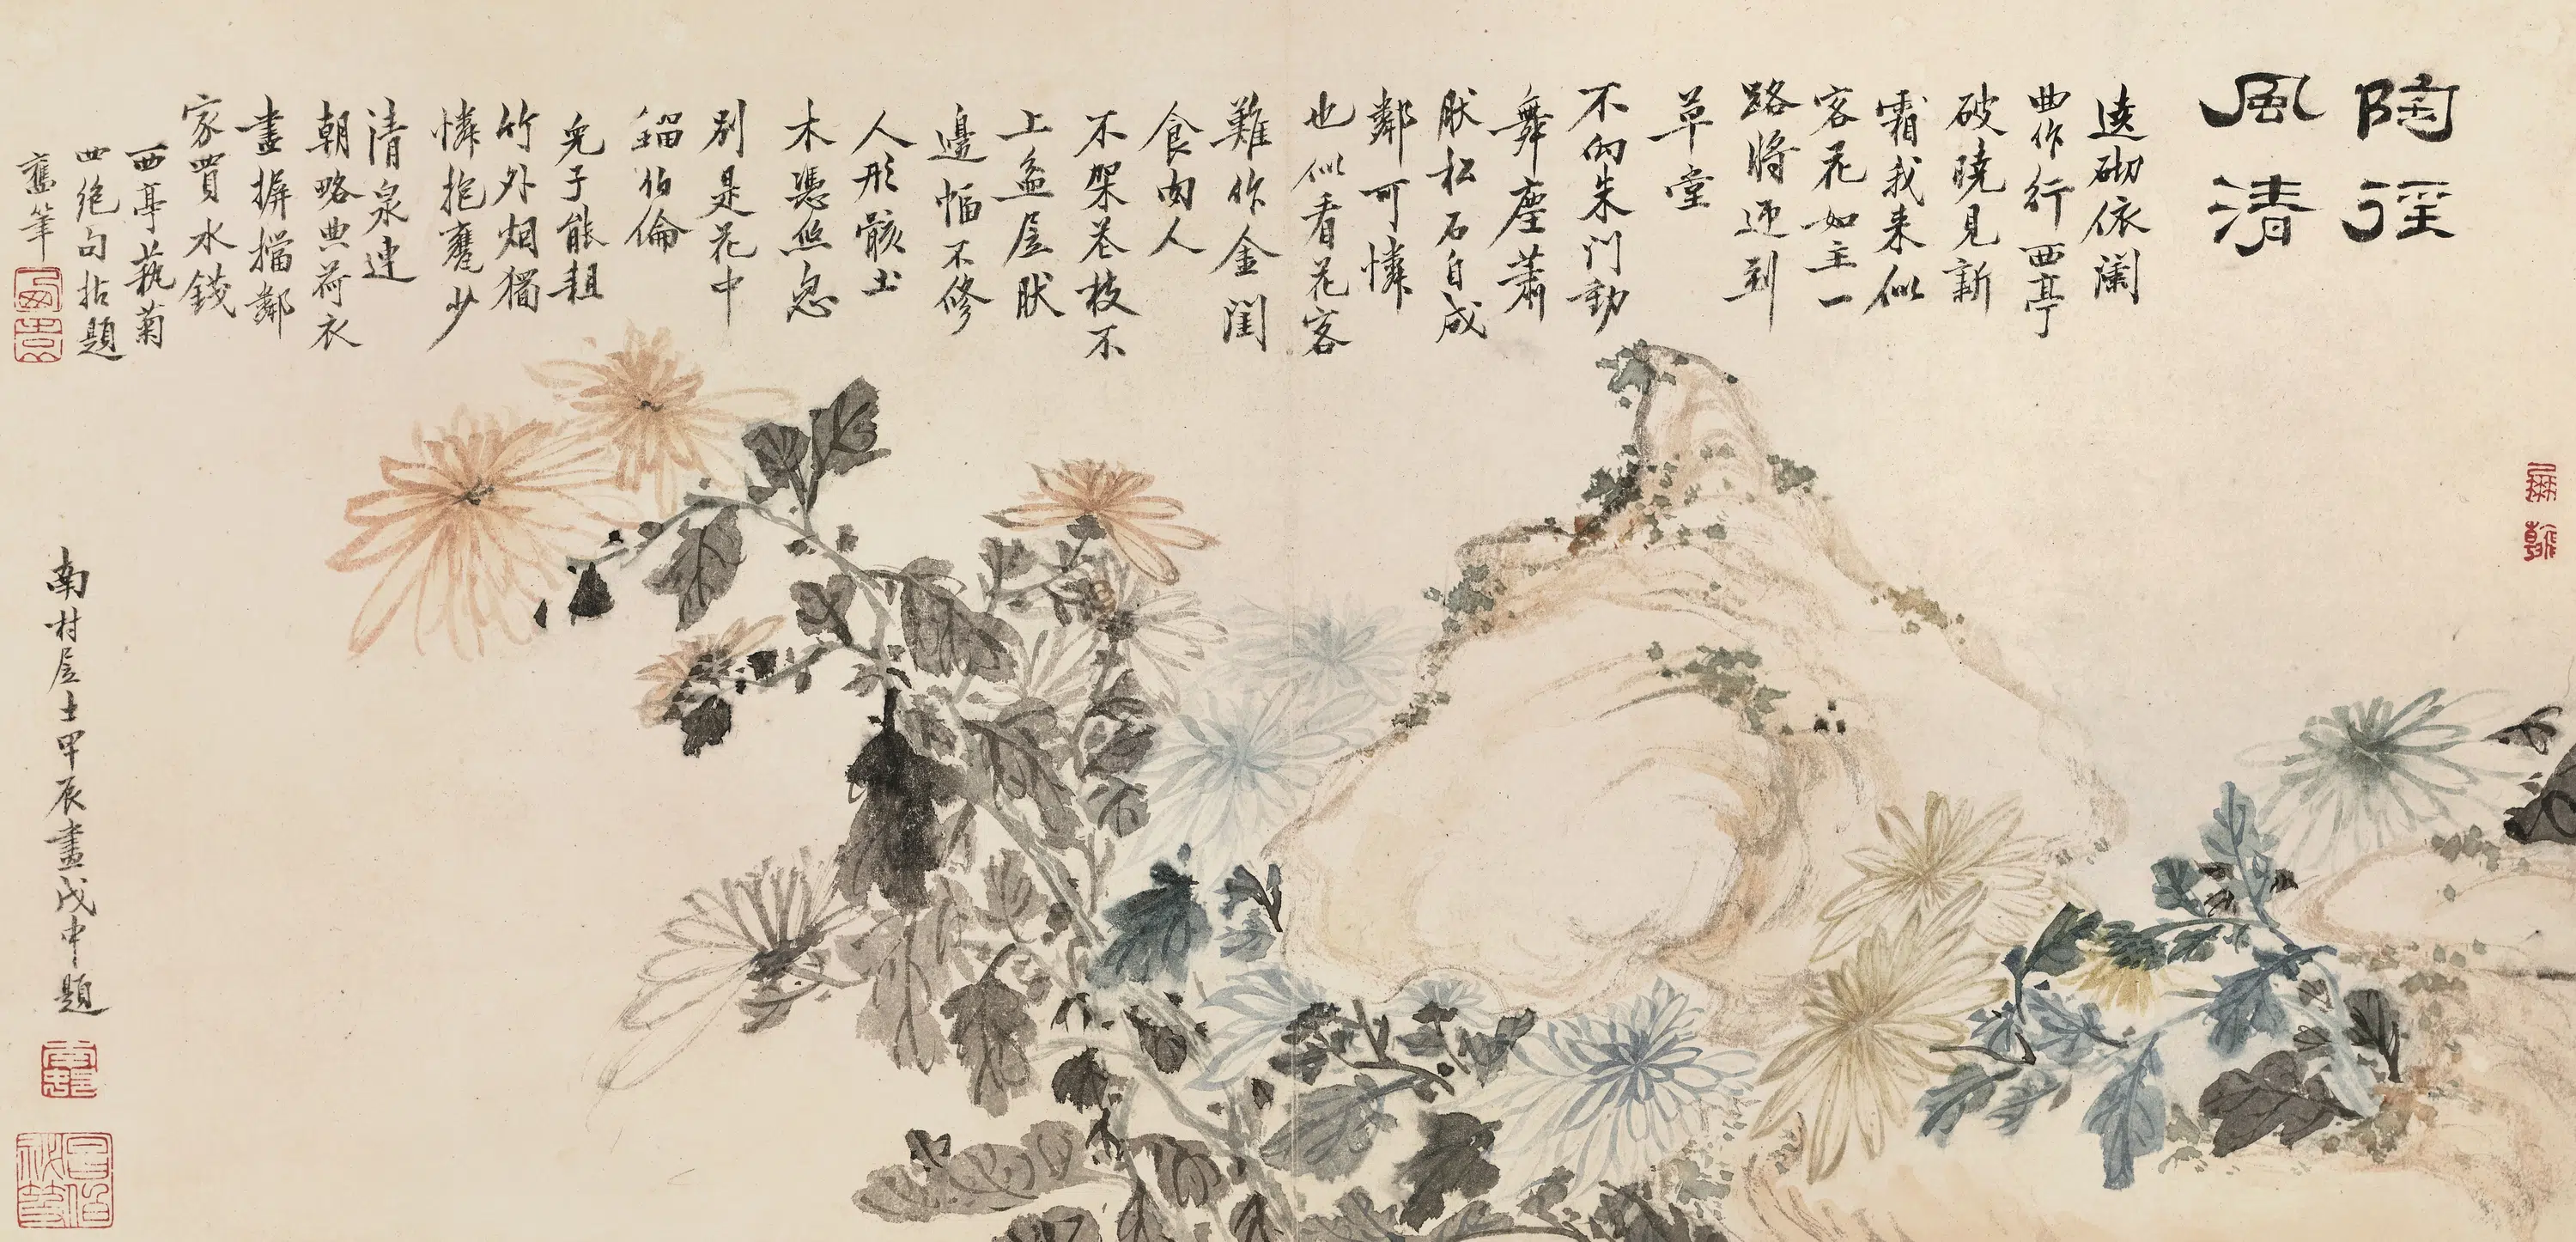 陶徑
風清
遶砌依闌
曲作行西亭
破曉見新
霜我來似
客花如主一
路將迎到
草堂
不向朱門動
舞塵蕭
肰松石自成
鄰可憐
也似看花客
難作金閨
食肉人
不架枝不
上盆居肰
邊幅不修
人形骸土
木憑忽
別是花中
鎦伯倫
兒子能耡
竹外烟獨
憐抱甕少
清泉連
朝略典荷衣
盡摒擋鄰
家買水錢
西亭藝菊
四絕句拈題
舊筆
南村居士甲辰畫戊申題